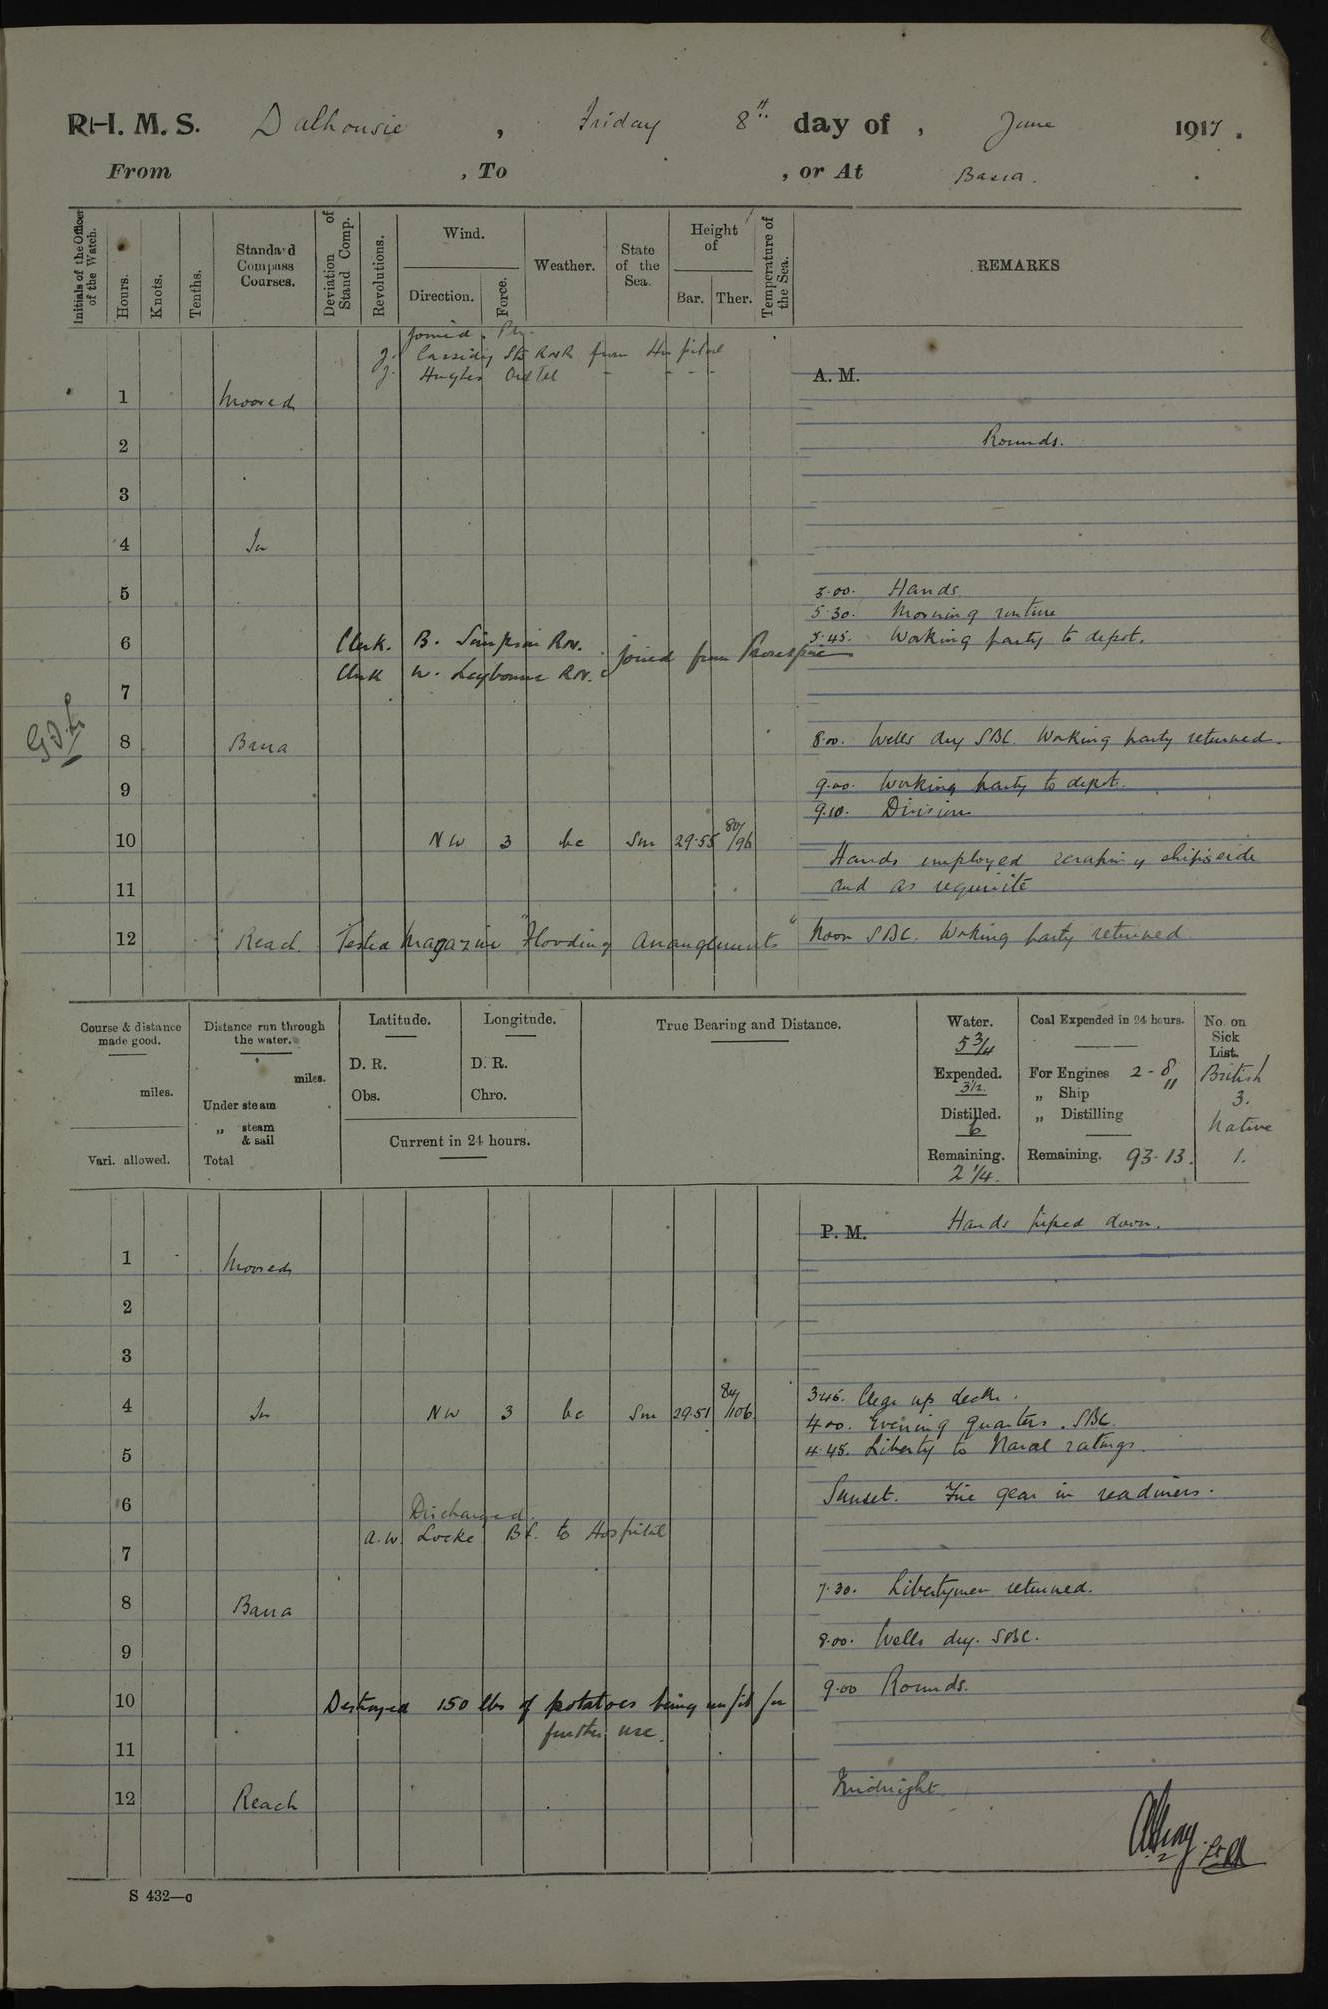 R.I.M.S. Dalhousie , Friday 8th day of , June 1917.
From , To , or At Basra.
Initials of the Officer of the Watch.
Hours.
Knots.
Tenths.
Standard Compass Courses.
Deviation of Stand Comp.
Revolutions.
Wind.
Direction.
Force.
Weather.
State of the Sea.
Height of
Bar. Ther.
Temperature of the Sea.
REMARKS
Joined
J. Cassidy Sto RNR from Hospital
J. Hughes Ord Tel - - - -
A. M.
1 Moored
2 Rounds.
3
4 In
5 5.00. Hands.
5.30. Morning routine
6 Clerk. B. Simpson Rov. 5.45. Working party to depot.
Clerk W. Leybourne Rov. joined from Proserpine
7
8 Basra 8.00. Wells dry SBC. Working party returned.
9 9.00. Working party to depot.
9.10. Divisions
10 NW 3 bc Sm 29.55 80/96
Hands employed scraping ship's side
11 and as requisite
12 Reach Tested Magazine "Flooding Arrangements" Noon SBC. Working party returned
Course & distance made good.
miles.
Vari. allowed.
Distance run through the water.
miles.
Under steam
„ steam & sail
Total
Latitude.
D. R.
Obs.
Longitude.
D. R.
Chro.
Current in 24 hours.
True Bearing and Distance.
Water.
5 3/4
Expended.
3 1/2
Distilled.
6
Remaining.
2 1/4.
Coal Expended in 24 hours.
For Engines 2-8
„ Ship "
„ Distilling
Remaining. 93-13.
No. on Sick List.
British
3.
Native
1.
P. M. Hands piped down.
1 Moored
2
3
4 In NW 3 bc Sm 29.51 84/106 3.45. Clear up decks.
4.00. Evening quarters. SBC.
5 4.45. Liberty to Naval ratings.
6 Sunset. Fire gear in readiness.
Discharged.
A. W. Locke to Hospital
7
7.30. Libertymen returned.
8 Basra
8.00. Wells dry. SBC.
9
9.00 Rounds.
10 Destroyed 150 lbs of potatoes being unfit for
further use.
11
Midnight
12 Reach
S 432—c